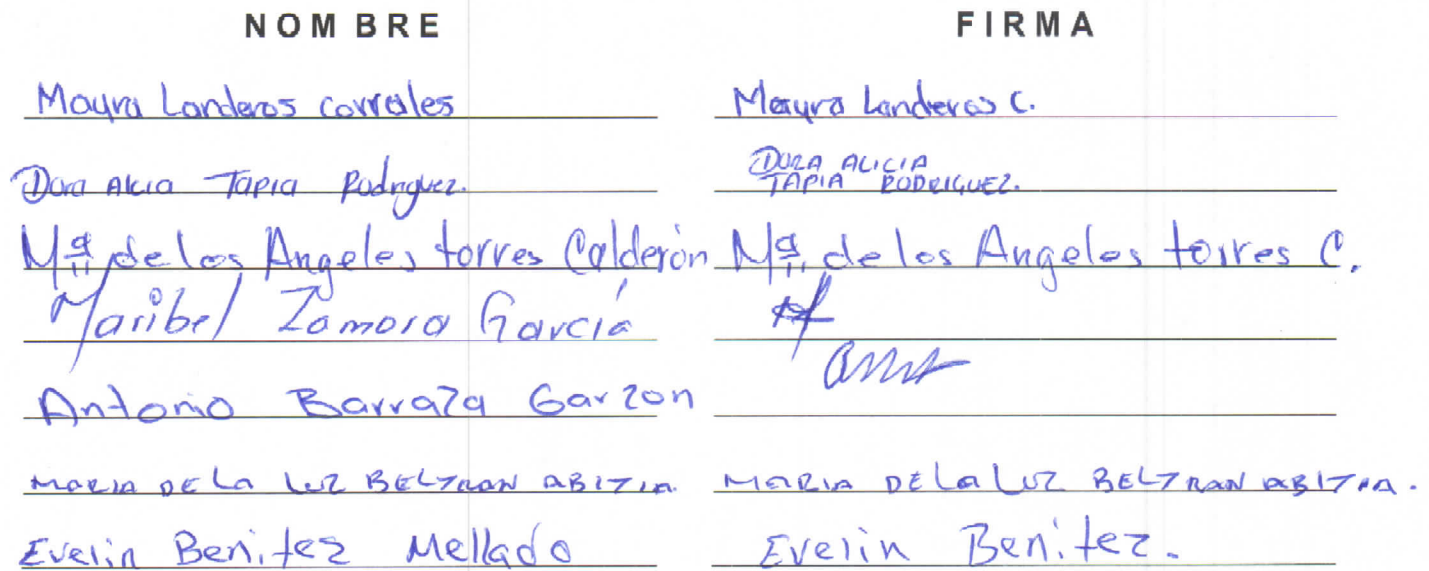 NOMBRE FIRMA
Mayra Landeros corrales Mayra Landeros C.
Dora Alicia Tapia Rodriguez. DORA ALICIA
TAPIA RODRIGUEZ.
Mª de los Angeles torres Calderón Mª de los Angeles torres C.
Maribel Zamora García
Antonio Barraza Garzon
MARIA DE LA LUZ BELTRAN ABITIA. MARIA DE LA LUZ BELTRAN ABITIA.
Evelin Benitez Mellado Evelin Benitez.